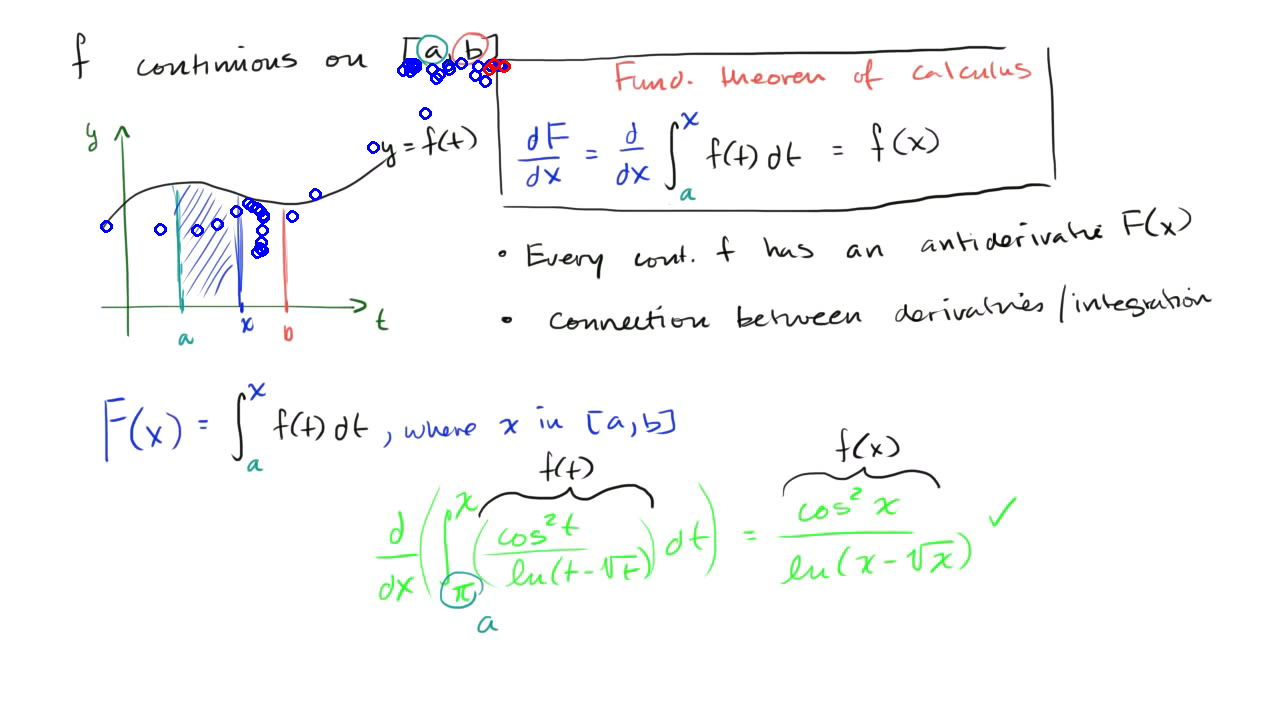 f continuous on [a, b]
Fund. theorem of calculus
dF/dx = d/dx ∫_a^x f(t) dt = f(x)
y
y = f(t)
a x b t
• Every cont. f has an antiderivative F(x)
• connection between derivatives/integration
F(x) = ∫_a^x f(t) dt, where x in [a,b]
f(t) f(x)
d/dx (∫_π^x (cos²t / ln(t-√t)) dt) = cos² x / ln(x-√x) ✓
a